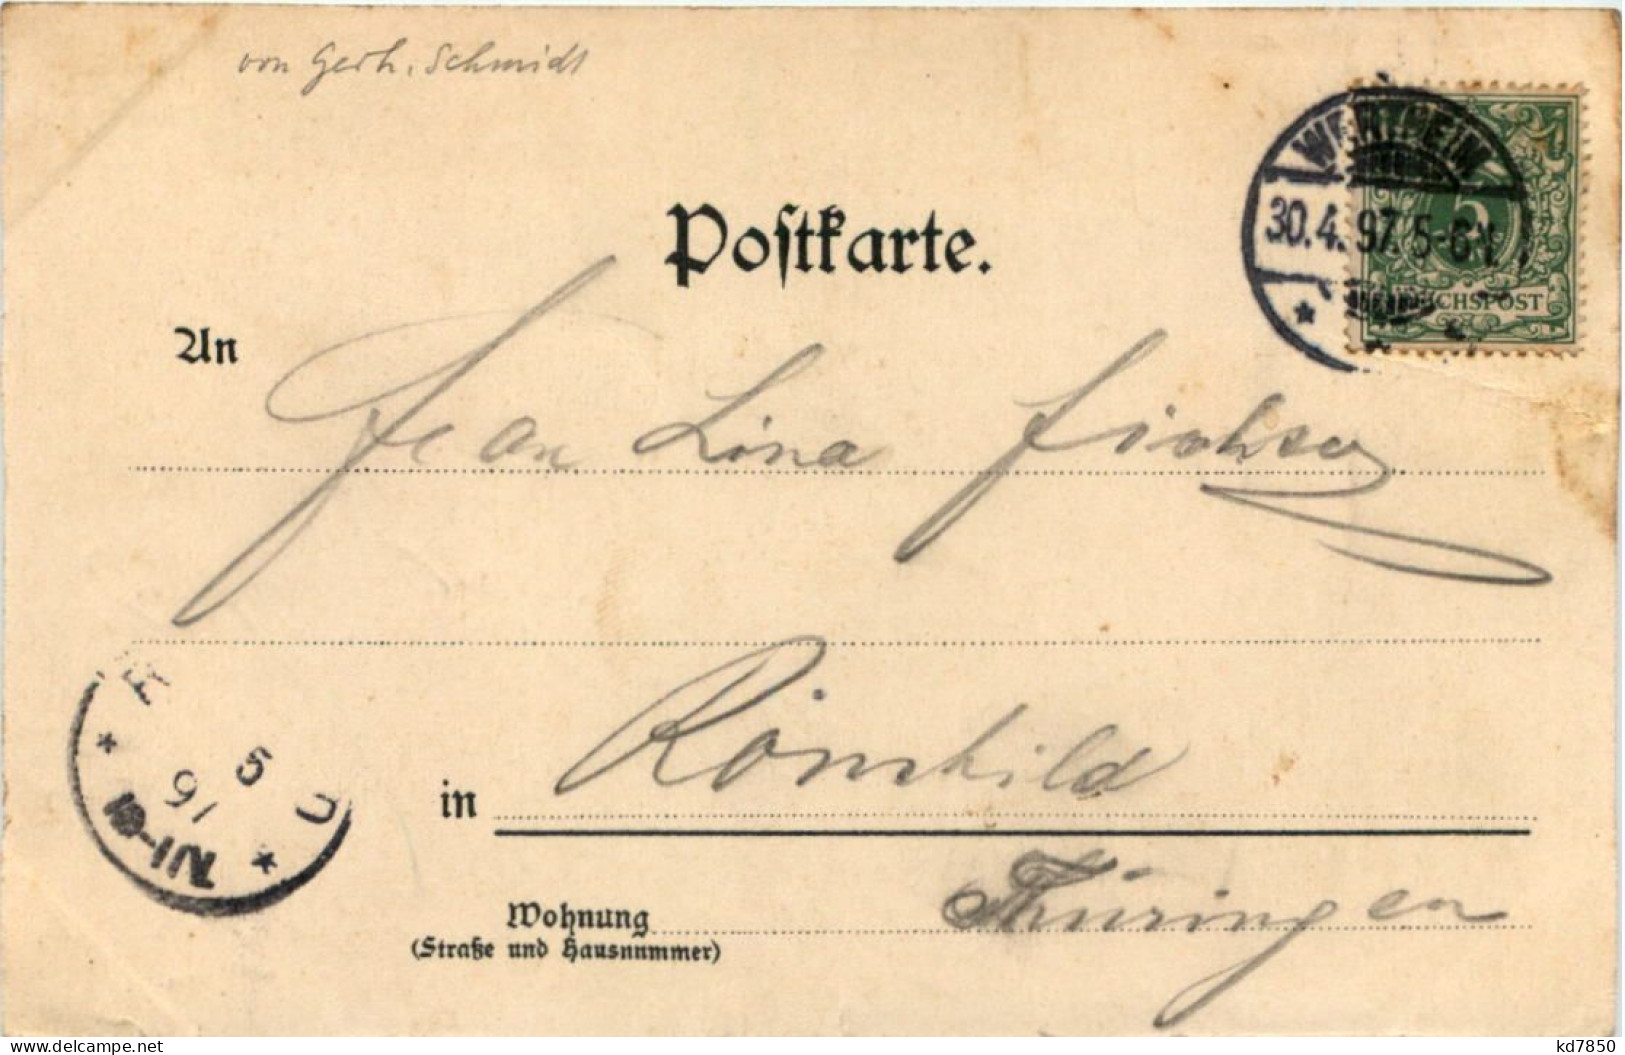 von Gerh. Schmidt
WERTHEIM
30.4.97. 5-6N.
5
REICHSPOST
Postkarte.
An
Frau Lina
in Römhild
Wohnung Thüringen
(Straße und Hausnummer)
R
5
97
7-8
delcampe.net
kd7850